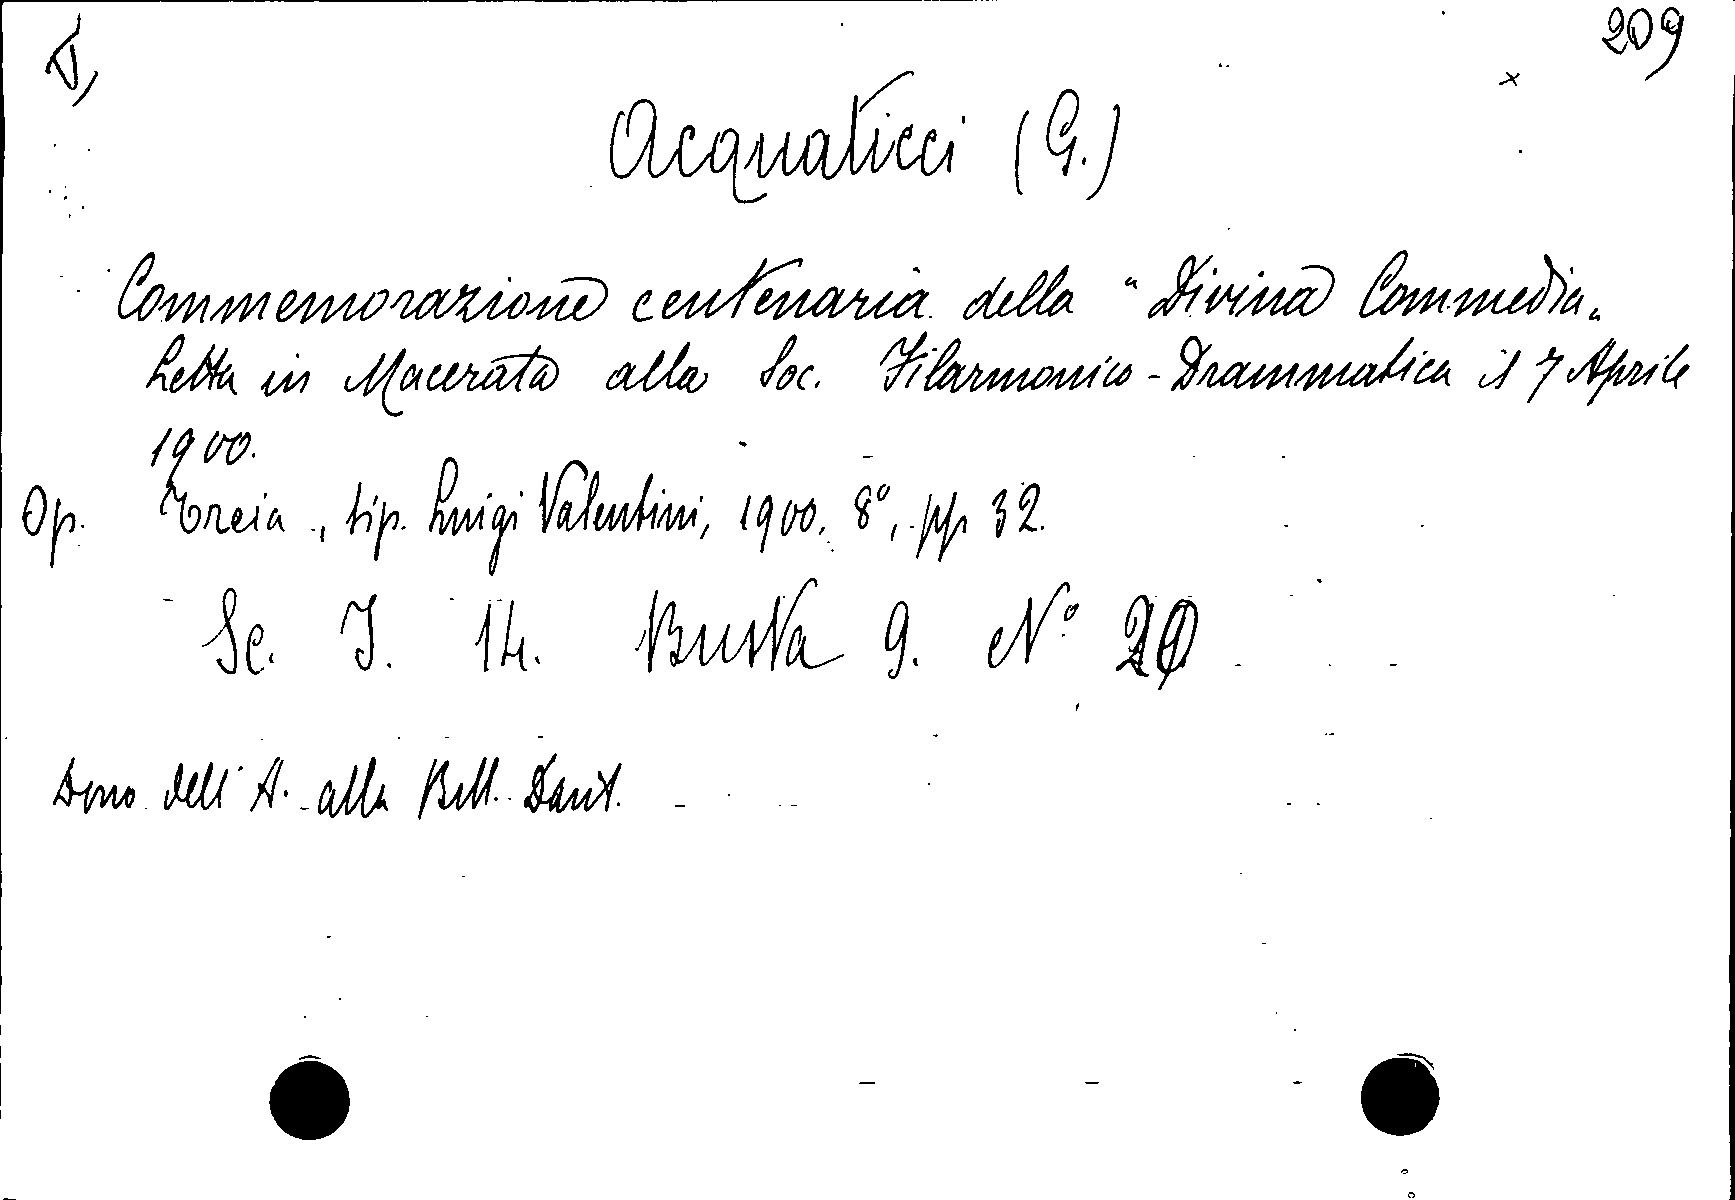 209
Acquaticci (G.)
Commemorazione centenaria della "Divina Commedia"
Letta in Macerata alla Soc. Filarmonico-Drammatica il 7 Aprile
1900.
Op. Treia, tip. Luigi Valentini, 1900. 8°, pp. 32.
Sc. I. 14. Busta 9. N°
Dono dell'A. alla Bibl. Dant.